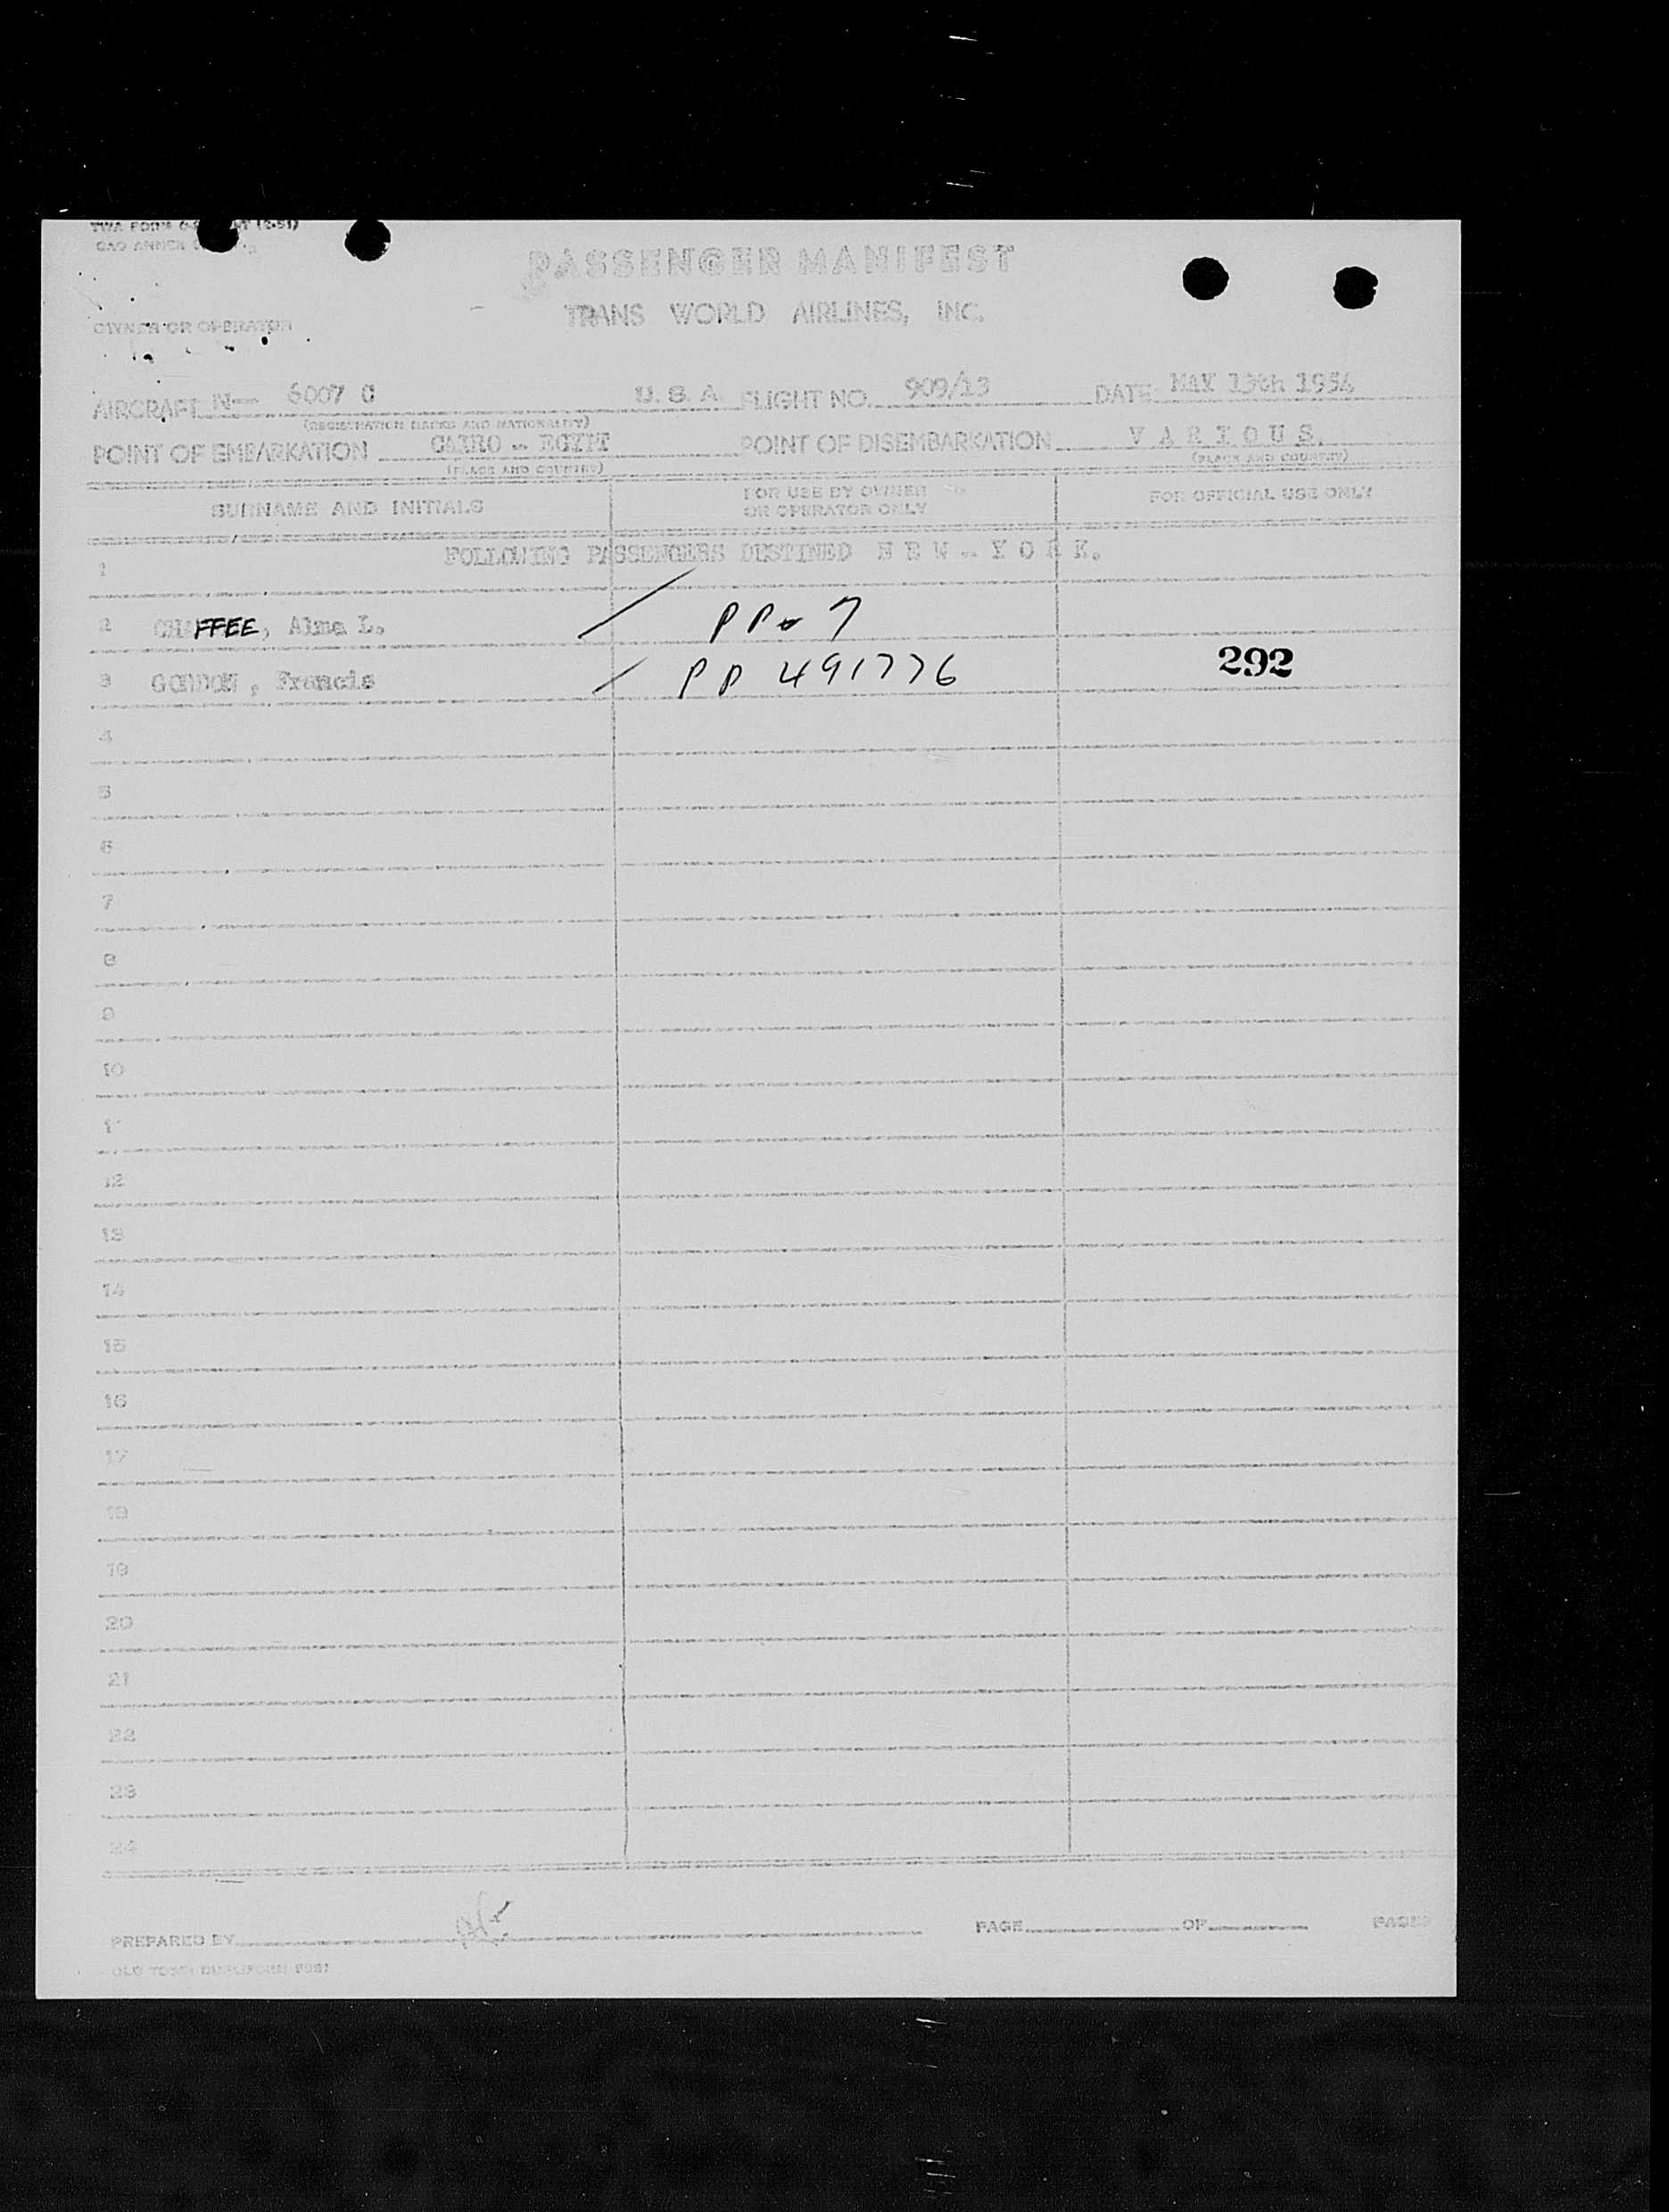 TWA FORM
PASSENGER MANIFEST
TRANS WORLD AIRLINES, INC.
OWNER OR OPERATOR
AIRCRAFT N-- 6007 C U.S.A. FLIGHT NO. 909/13 DATE MAY 13th 1954
(REGISTRATION MARKS AND NATIONALITY)
POINT OF EMBARKATION CAIRO - EGYPT POINT OF DISEMBARKATION V A R I O U S.
(PLACE AND COUNTRY) (PLACE AND COUNTRY)
SURNAME AND INITIALS FOR USE BY OWNER OR OPERATOR ONLY FOR OFFICIAL USE ONLY
1 FOLLOWING PASSENGERS DESTINED N E W - Y O R K.
2 CHAFFEE, Alma L. PP 7
3 GORDON, Francis PP 491776 292
4
5
6
7
8
9
10
11
12
13
14
15
16
17
18
19
20
21
22
23
24
PREPARED BY PAGE OF PAGES
OLD TOWN